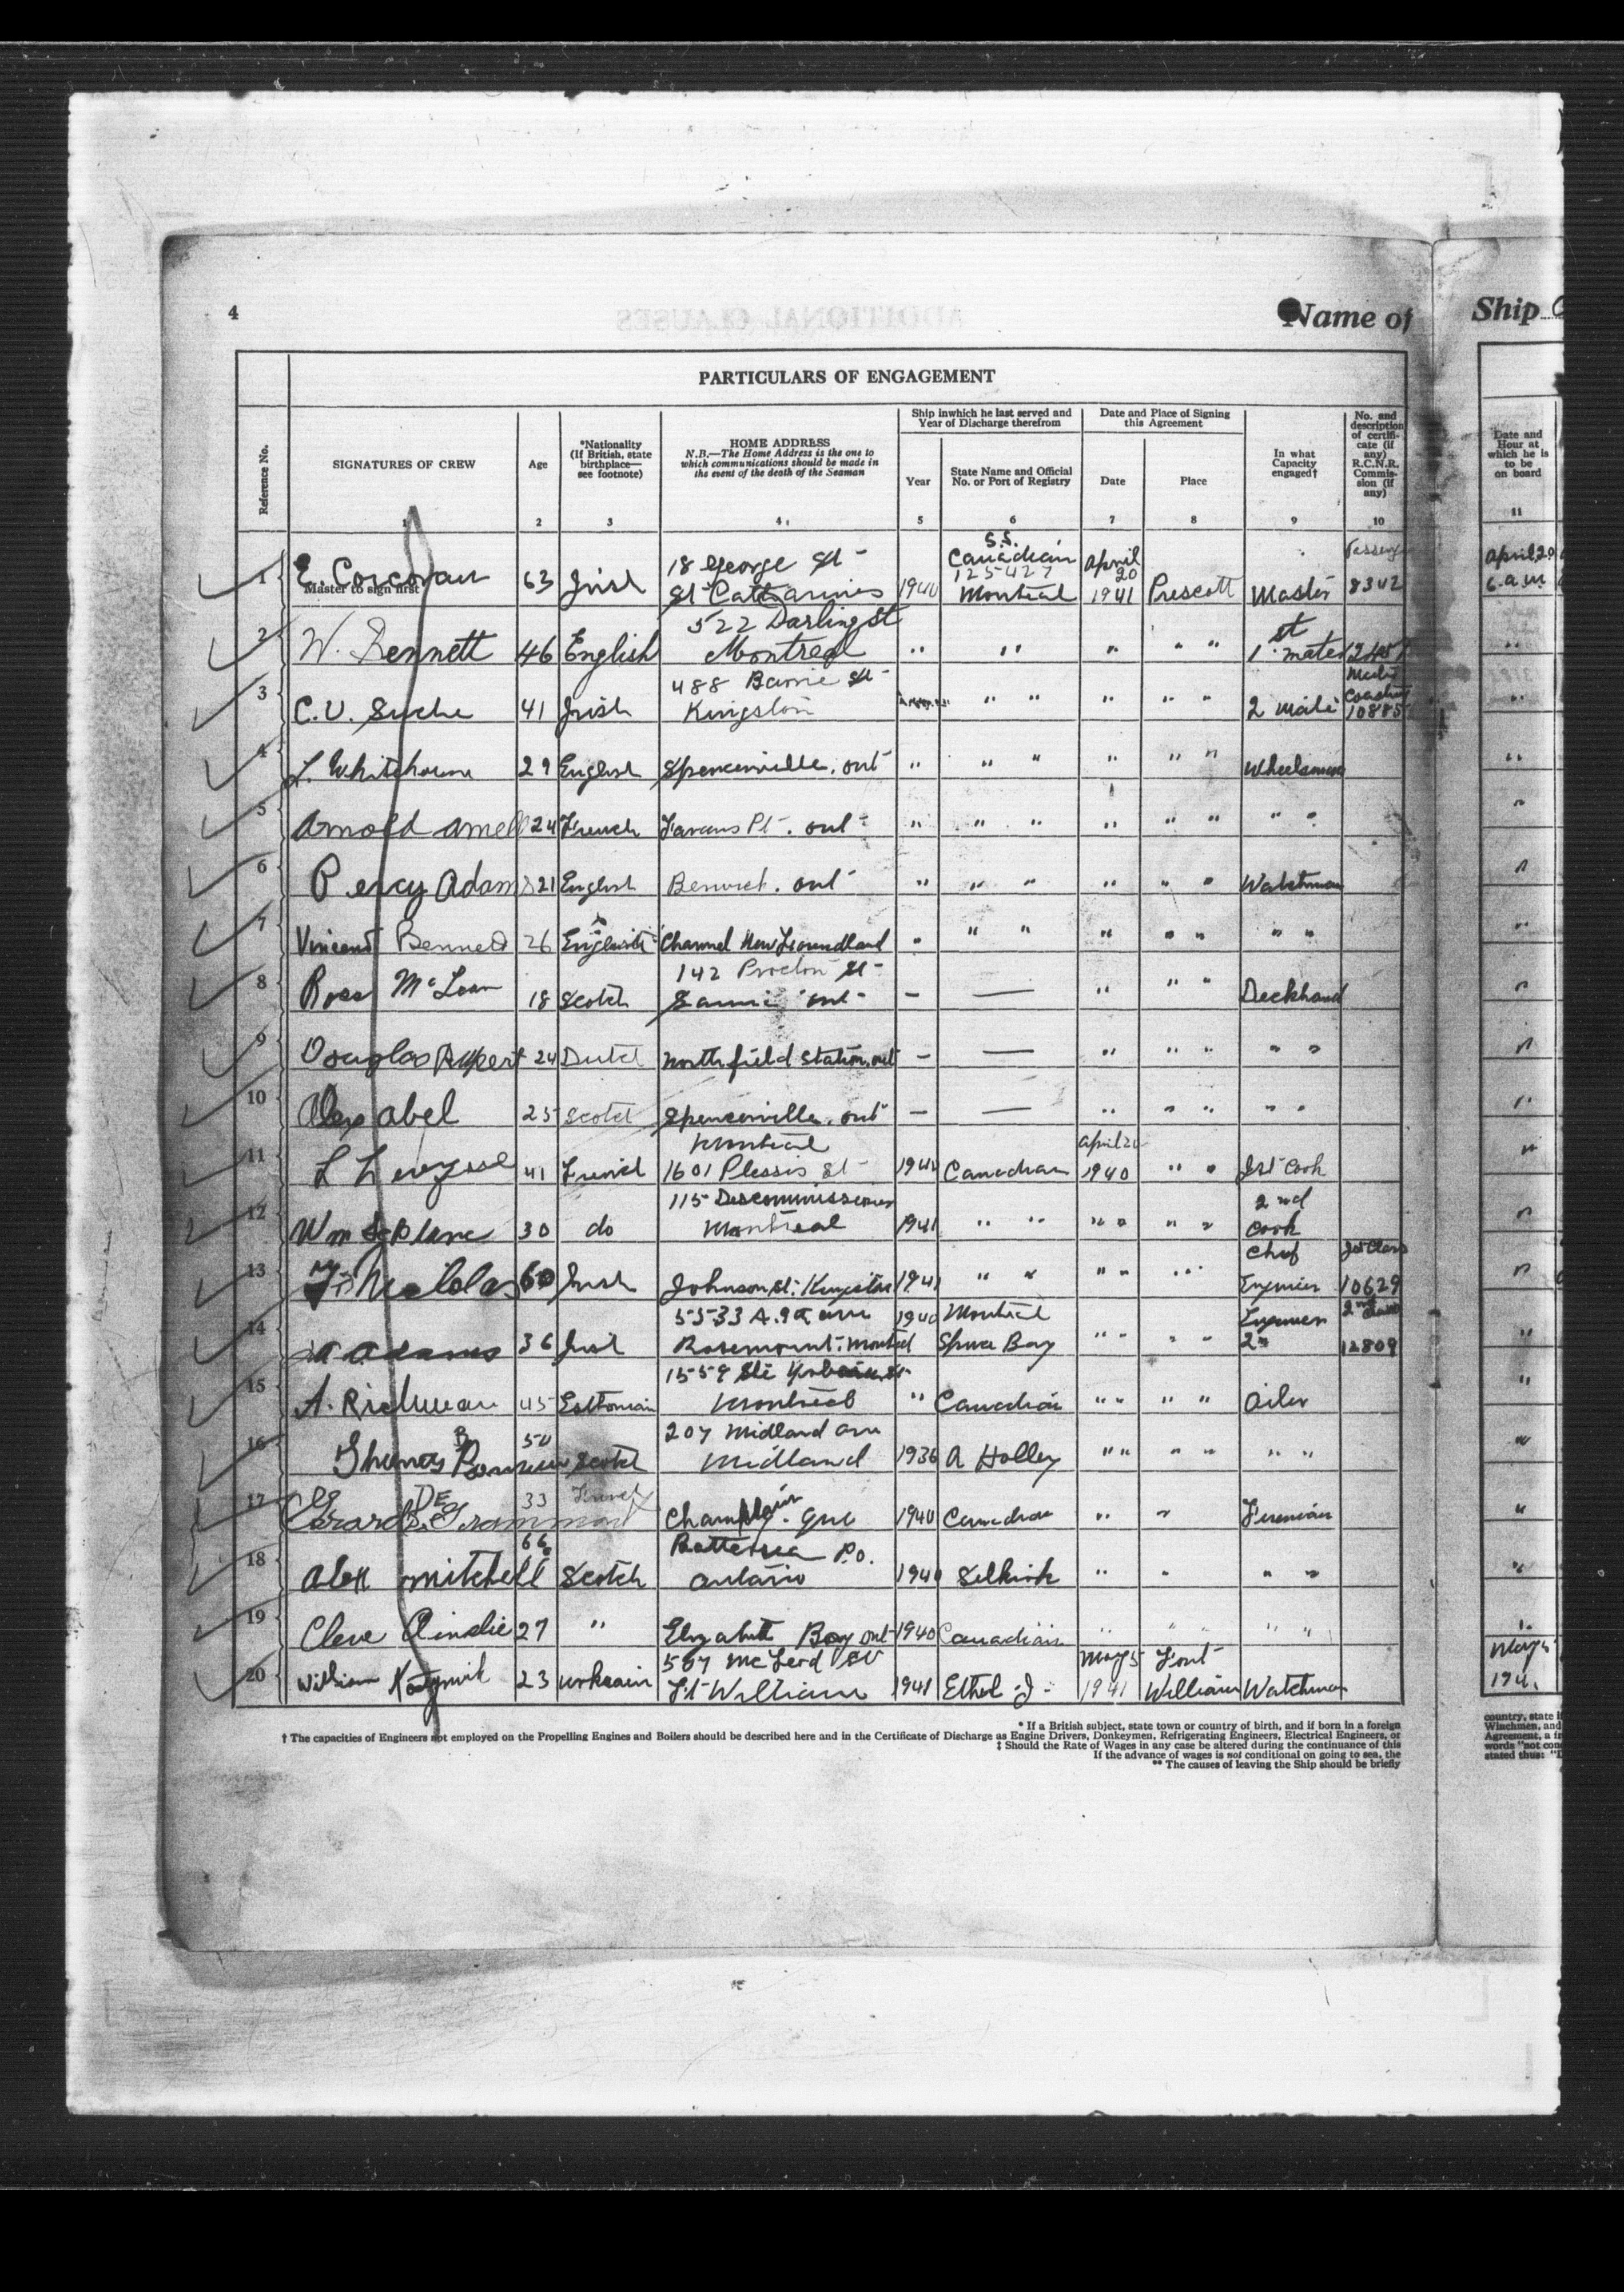 4
Name of
Ship
PARTICULARS OF ENGAGEMENT
Reference No.
SIGNATURES OF CREW
Age
*Nationality
(If British, state
birthplace—
see footnote)
HOME ADDRESS
N.B.—The Home Address is the one to
which communications should be made in
the event of the death of the Seaman
Ship inwhich he last served and
Year of Discharge therefrom
Year
State Name and Official
No. or Port of Registry
Date and Place of Signing
this Agreement
Date
Place
In what
Capacity
engaged†
No. and
description
of certifi-
cate (if
any)
R.C.N.R.
Commis-
sion (if
any)
Date and
Hour at
which he is
to be
on board
1 2 3 4 5 6 7 8 9 10 11
Master to sign first
1 E. Corcoran 63 Irish 18 George St St Catharines 1940 S.S. Canadian 125427 Montreal April 20 1941 Prescott Master 8342 April 20 6 a.m.
2 W. Bennett 46 English 522 Darling St Montreal " " " " " 1st mate
3 C.V. 41 Irish 488 Barrie St Kingston " " " " " 2 mate 10885
4 L. Whitehorne 29 English Spencerville. Ont " " " " " " Wheelsman
5 Arnold Amell 24 French Farans Pt. Ont " " " " " " " "
6 Percy Adams 21 English Berwick. Ont " " " " " " Watchman
7 Vincent Bennett 26 Channel New Foundland " " " " " " " "
8 Ross McLean 18 Scotch 142 Proctor St Ont - — " " " Deckhand
9 Douglas Rupert 24 Dutch Northfield Station. Ont - — " " " " "
10 Alex Abel 25 Scotch Spencerville. Ont - — " " " " "
11 L 41 French Montreal 1601 Plessis St 1940 Canadian April 20 1940 " " 1st Cook
12 Wm LeBlanc 30 do 115 Descommissaires Montreal 1941 " " " " " " 2nd Cook
13 60 Irish Johnson St. Kingston 1941 " " " " " " Chief 1st Class 10629
14 A Adams 36 Irish 5533 Rosemount. Montreal 1940 Montreal Spruce Bay " " " " 2nd 2nd Class 12809
15 A. Richman 45 Esthonian 1559 Montreal " Canadian " " " " Oiler
16 Thomas 50 Scotch 207 Midland Ave Midland 1936 A Holley " " " " " "
17 Gerard DE Grammont 33 French Champlain. Que 1940 Canadian " " Fireman
18 Alex Mitchell 66 Scotch Battersea P.O. Ontario 1940 Selkirk " " " "
19 Cleve Ainslie 27 " Elizabeth Bay Ont 1940 Canadian " " " " "
20 William 23 507 McLeod St Ft William 1941 Ethel J. May 5 1941 Fort William Watchman May
* If a British subject, state town or country of birth, and if born in a foreign
† The capacities of Engineers not employed on the Propelling Engines and Boilers should be described here and in the Certificate of Discharge as Engine Drivers, Donkeymen, Refrigerating Engineers, Electrical Engineers, or
‡ Should the Rate of Wages in any case be altered during the continuance of this
If the advance of wages is not conditional on going to sea, the
** The causes of leaving the Ship should be briefly
country, state
Winchmen, and
Agreement, a
words "not
stated thus: